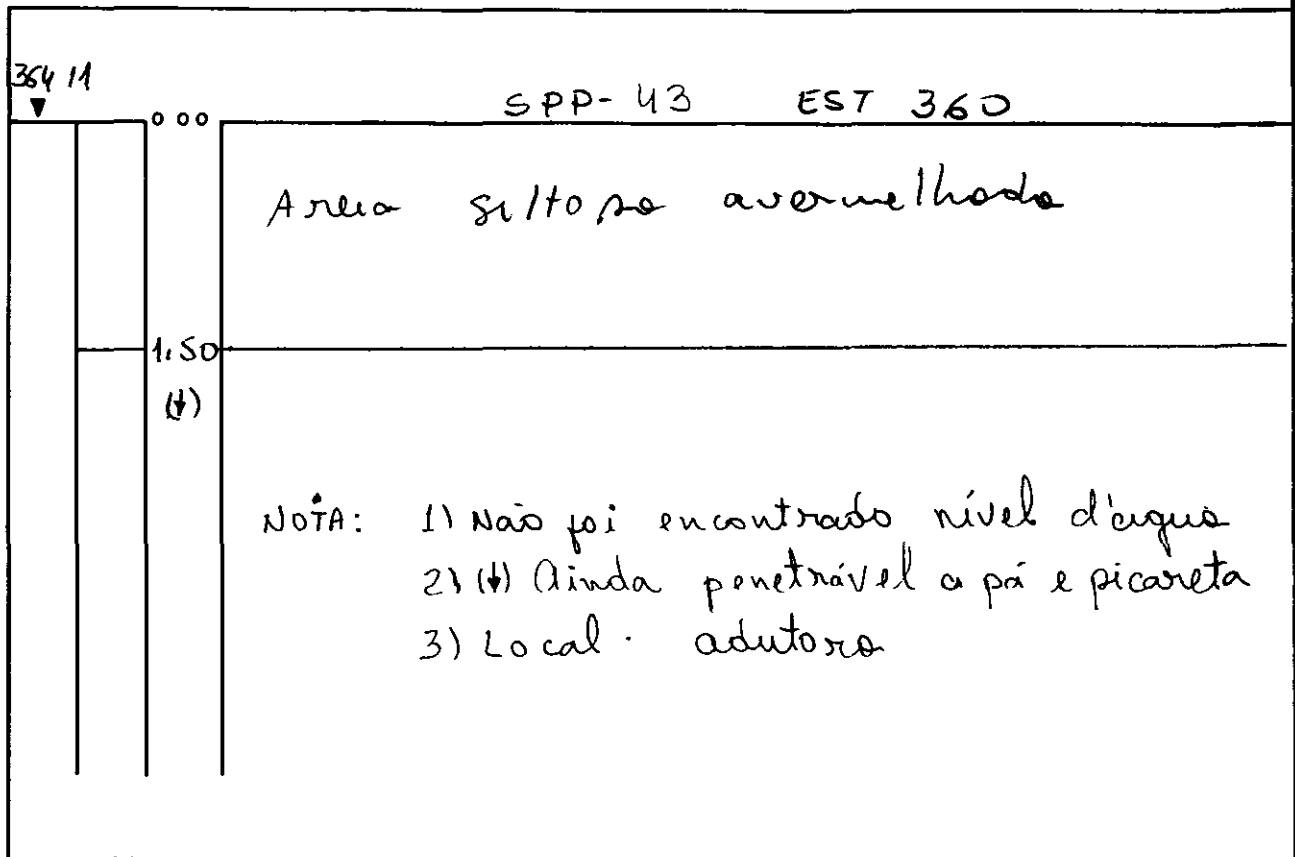 364 11
SPP-43 EST 360
0 00
Areia siltosa avermelhada
1.50
(↓)
NOTA: 1) Não foi encontrado nível d'água
2) (↓) Ainda penetrável a pá e picareta
3) Local. adutora